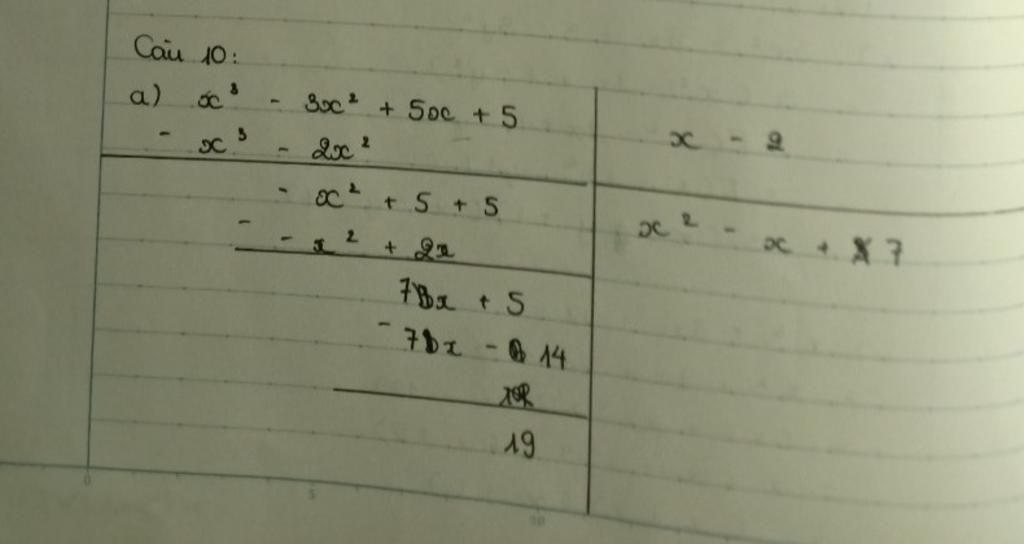 Câu 10:
a) x³ - 3x² + 5x + 5
x - 2
- x³ - 2x²
- x² + 5 + 5
x² - x + 7
- - x² + 2x
7x + 5
- 7x - 14
19
0 5 10